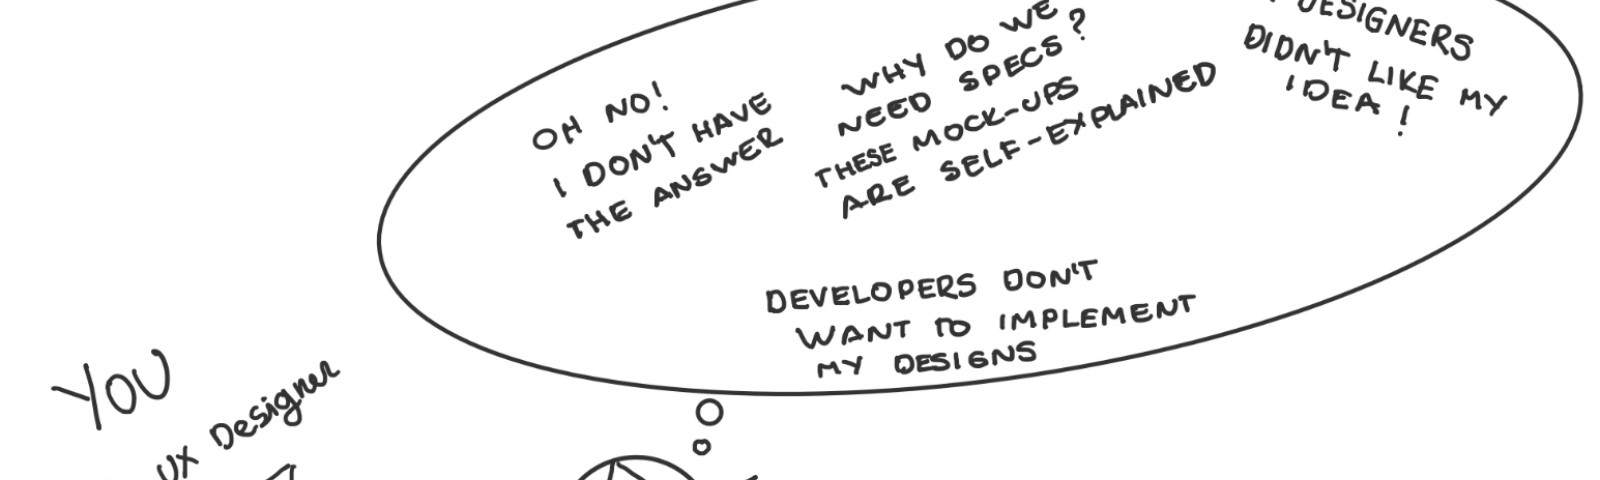 OH NO!
I DON'T HAVE
THE ANSWER
WHY DO WE
NEED SPECS?
THESE MOCK-UPS
ARE SELF-EXPLAINED
DESIGNERS
DIDN'T LIKE MY
IDEA!
DEVELOPERS DON'T
WANT TO IMPLEMENT
MY DESIGNS
YOU
UX Designer